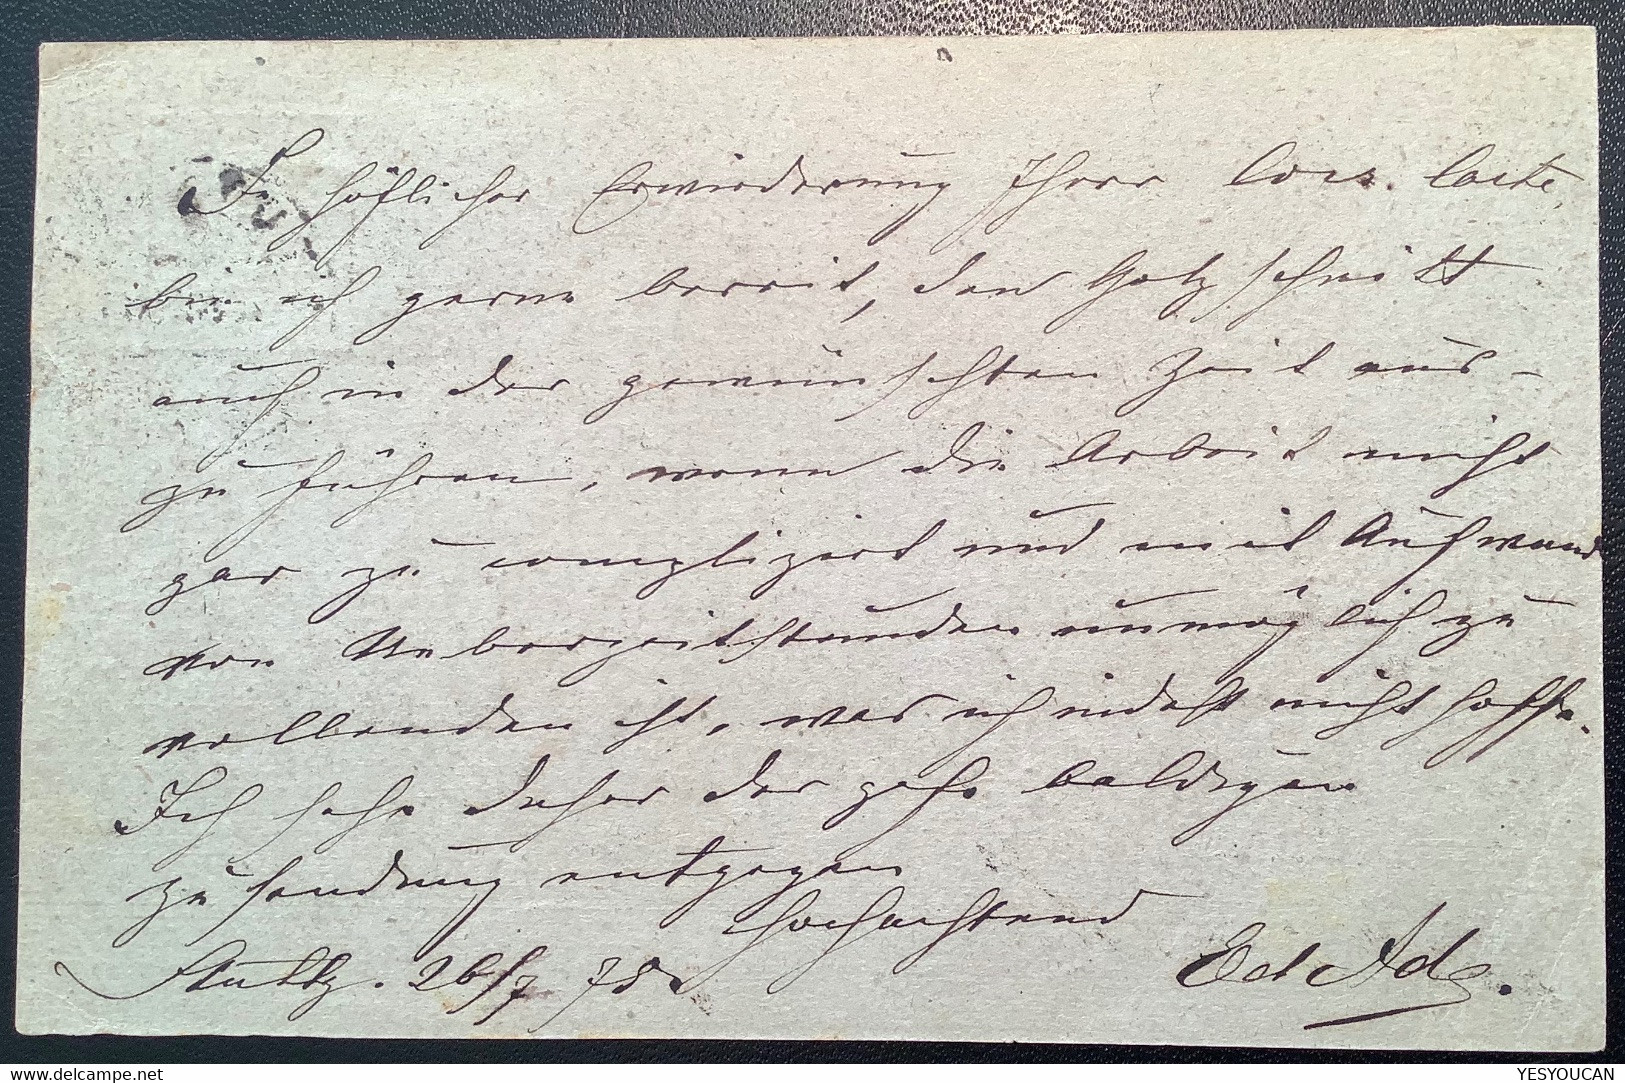 In höflicher Erwiederung Ihrer Cors. Carte,
bin ich gerne bereit, den Holzschnitt
auch in der gewünschten Zeit aus-
zu führen, wenn die Arbeit nicht
gar zu complizirt und mit Aufwand
von Ueberzeitstunden unmöglich zu
vollenden ist, was ich indeß nicht hoffe.
Ich sehe daher der gefl. baldigen
Zusendung entgegen
Hochachtend
Stuttg. 26/7 78. Ed Ade.
YESYOUCAN
delcampe.net